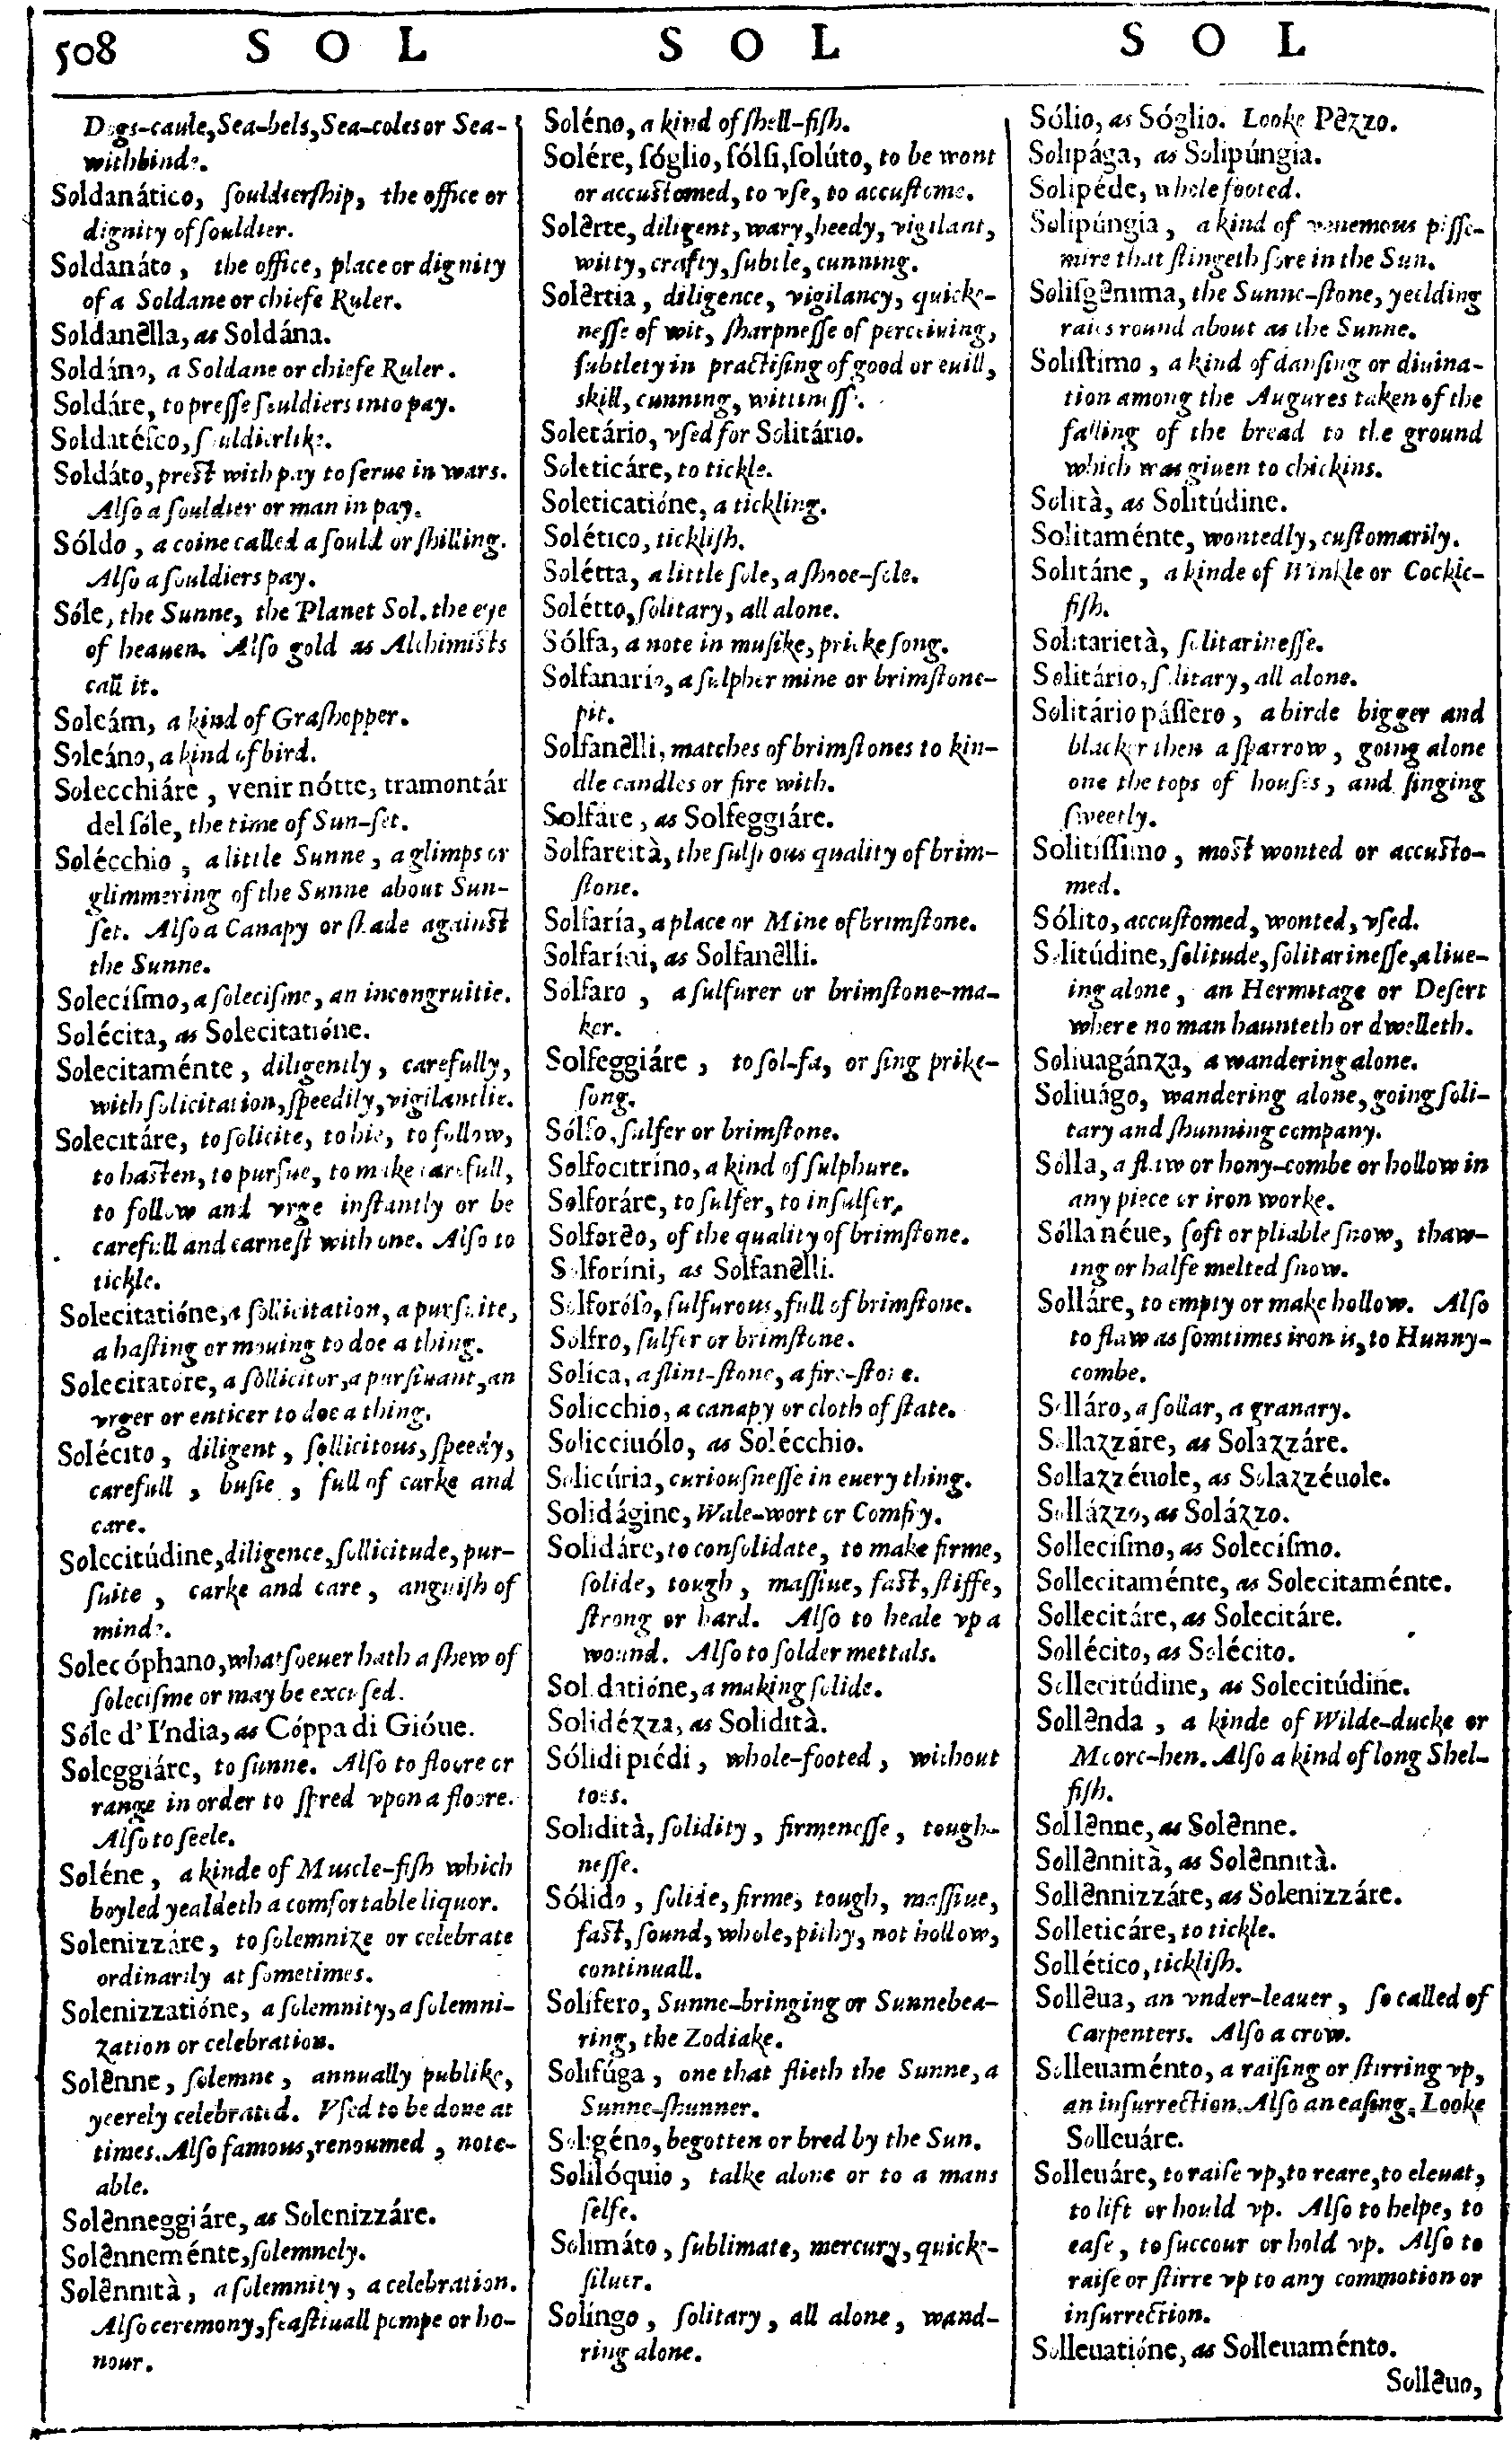 508 SOL SOL SOL
Dogs-caule, Sea-bels, Sea-coles or Sea-
withbinde.
Soldanático, ſouldierſhip, the office or
dignity of ſouldier.
Soldanáto, the office, place or dignity
of a Soldane or chiefe Ruler.
Soldanælla, as Soldána.
Soldáno, a Soldane or chiefe Ruler.
Soldáre, to preſſe ſouldiers into pay.
Soldatéſco, ſouldierlike.
Soldáto, prest with pay to ſerue in wars.
Alſo a ſouldier or man in pay.
Sóldo, a coine called a ſould or ſhilling.
Alſo a ſouldiers pay.
Sóle, the Sunne, the Planet Sol. the eye
of heauen. Alſo gold as Alchimists
call it.
Soleám, a kind of Graſhopper.
Soleáno, a kind of bird.
Solecchiáre, venir nótte, tramontár
del ſóle, the time of Sun-ſet.
Solécchio, a little Sunne, a glimps or
glimmering of the Sunne about Sun-
ſet. Alſo a Canapy or ſhade against
the Sunne.
Solecíſmo, a ſoleciſme, an incongruitie.
Solécita, as Solecitatióne.
Solecitaménte, diligently, carefully,
with ſolicitation, ſpeedily, vigilantlie.
Solecitáre, to ſolicite, to hie, to follow,
to hasten, to purſue, to make carefull,
to follow and vrge inſtantly or be
carefull and earneſt with one. Alſo to
tickle.
Solecitatióne, a ſollicitation, a purſuite,
a haſting or mouing to doe a thing.
Solecitatóre, a ſollicitor, a purſiuant, an
vrger or enticer to doe a thing.
Solécito, diligent, ſollicitous, ſpeedy,
carefull, buſie, full of carke and
care.
Solecitúdine, diligence, ſollicitude, pur-
ſuite, carke and care, anguiſh of
minde.
Solecóphano, whatſoeuer hath a ſhew of
ſoleciſme or may be excuſed.
Sóle d' I'ndia, as Cóppa di Gióue.
Soleggiáre, to ſunne. Alſo to floore or
range in order to ſpred vpon a floore.
Alſo to ſeele.
Soléne, a kinde of Muscle-fiſh which
boyled yealdeth a comfortable liquor.
Solenizzáre, to ſolemnize or celebrate
ordinarily at ſometimes.
Solenizzatióne, a ſolemnity, a ſolemni-
zation or celebration.
Solænne, ſolemne, annually publike,
yeerely celebrated. Vſed to be done at
times. Alſo famous, renoumed, note-
able.
Solænneggiáre, as Solenizzáre.
Solænneménte, ſolemnely.
Solænnità, a ſolemnity, a celebration.
Alſo ceremony, feaſtiuall pompe or ho-
nour.
Soléno, a kind of ſhell-fiſh.
Solére, ſóglio, ſólſi, ſolúto, to be wont
or accustomed, to vſe, to accuſtome.
Solærte, diligent, wary, heedy, vigilant,
witty, crafty, ſubtle, cunning.
Solærtia, diligence, vigilancy, quicke-
neſſe of wit, ſharpneſſe of perceiuing,
ſubtlety in practiſing of good or euill,
skill, cunning, wittineſſe.
Soletário, vſed for Solitário.
Soleticáre, to tickle.
Soleticatióne, a tickling.
Solético, tickliſh.
Solétta, a little ſole, a ſhooe-ſole.
Solétto, ſolitary, all alone.
Sólfa, a note in muſike, pricke ſong.
Solfanario, a ſulpher mine or brimſtone-
pit.
Solfanælli, matches of brimſtones to kin-
dle candles or fire with.
Solfáre, as Solfeggiáre.
Solfareità, the ſulphous quality of brim-
ſtone.
Solfaría, a place or Mine of brimſtone.
Solfaríni, as Solfanælli.
Sólfaro, a ſulfurer or brimſtone-ma-
ker.
Solfeggiáre, to ſol-fa, or ſing prike-
ſong.
Sólfo, ſulfer or brimſtone.
Solfocitríno, a kind of ſulphure.
Solforáre, to ſulfer, to inſulfer,
Solforæo, of the quality of brimſtone.
Solforíni, as Solfanælli.
Solforóſo, ſulfurous, full of brimſtone.
Solfro, ſulfer or brimſtone.
Solíca, a flint-ſtone, a fire-ſtone.
Solicchio, a canapy or cloth of ſtate.
Solicciuólo, as Solécchio.
Solicúria, curiouſneſſe in euery thing.
Solidágine, Wale-wort or Comfry.
Solidáre, to conſolidate, to make firme,
ſolide, tough, maſſiue, fast, ſtiffe,
ſtrong or hard. Alſo to heale vp a
wound. Alſo to ſolder mettals.
Solidatióne, a making ſolide.
Solidézza, as Solidità.
Sólidi piédi, whole-footed, without
toes.
Solidità, ſolidity, firmeneſſe, tough-
neſſe.
Sólido, ſolide, firme, tough, maſſiue,
fast, ſound, whole, pithy, not hollow,
continuall.
Solífero, Sunne-bringing or Sunnebea-
ring, the Zodiake.
Solifúga, one that flieth the Sunne, a
Sunne-ſhunner.
Soligéno, begotten or bred by the Sun.
Solilóquio, talke alone or to a mans
ſelfe.
Solimáto, ſublimate, mercury, quicke-
ſiluer.
Solíngo, ſolitary, all alone, wand-
ring alone.
Sólio, as Sóglio. Looke Pæzzo.
Solipága, as Solipúngia.
Solipéde, whole footed.
Solipúngia, a kind of venemous piſſe-
mire that ſtingeth ſore in the Sun.
Soliſgæmma, the Sunne-ſtone, yeelding
raies round about as the Sunne.
Soliſtimo, a kind of danſing or diuina-
tion among the Augures taken of the
falling of the bread to the ground
which was giuen to chickins.
Solità, as Solitúdine.
Solitaménte, wontedly, cuſtomarily.
Solitáne, a kinde of Winkle or Cockle-
fiſh.
Solitarietà, ſolitarineſſe.
Solitário, ſolitary, all alone.
Solitário páſſero, a birde bigger and
blacker then a ſparrow, going alone
one the tops of houſes, and ſinging
ſweetly.
Solitíſſimo, most wonted or accusto-
med.
Sólito, accuſtomed, wonted, vſed.
Solitúdine, ſolitude, ſolitarineſſe, a liue-
ing alone, an Hermitage or Deſert
where no man haunteth or dwelleth.
Soliuagánza, a wandering alone.
Soliuágo, wandering alone, going ſoli-
tary and ſhunning company.
Sólla, a flaw or hony-combe or hollow in
any piece or iron worke.
Sólla néue, ſoft or pliable ſnow, thaw-
ing or halfe melted ſnow.
Solláre, to empty or make hollow. Alſo
to flaw as ſomtimes iron is, to Hunny-
combe.
Solláro, a ſollar, a granary.
Sollazzáre, as Solazzáre.
Sollazzéuole, as Solazzéuole.
Sollázzo, as Solázzo.
Solleciſmo, as Soleciſmo.
Sollecitaménte, as Solecitaménte.
Sollecitáre, as Solecitáre.
Sollécito, as Solécito.
Sollecitúdine, as Solecitúdine.
Sollænda, a kinde of Wilde-ducke or
Moore-hen. Alſo a kind of long Shel-
fiſh.
Sollænne, as Solænne.
Sollænnità, as Solænnità.
Sollænnizzáre, as Solenizzáre.
Solleticáre, to tickle.
Sollético, tickliſh.
Sollæua, an vnder-leauer, ſo called of
Carpenters. Alſo a crow.
Solleuaménto, a raiſing or ſtirring vp,
an inſurrection. Alſo an eaſing. Looke
Solleuáre.
Solleuáre, to raiſe vp, to reare, to eleuat,
to lift or hould vp. Alſo to helpe, to
eaſe, to ſuccour or hold vp. Alſo to
raiſe or ſtirre vp to any commotion or
inſurrection.
Solleuatióne, as Solleuaménto.
Sollæuo,